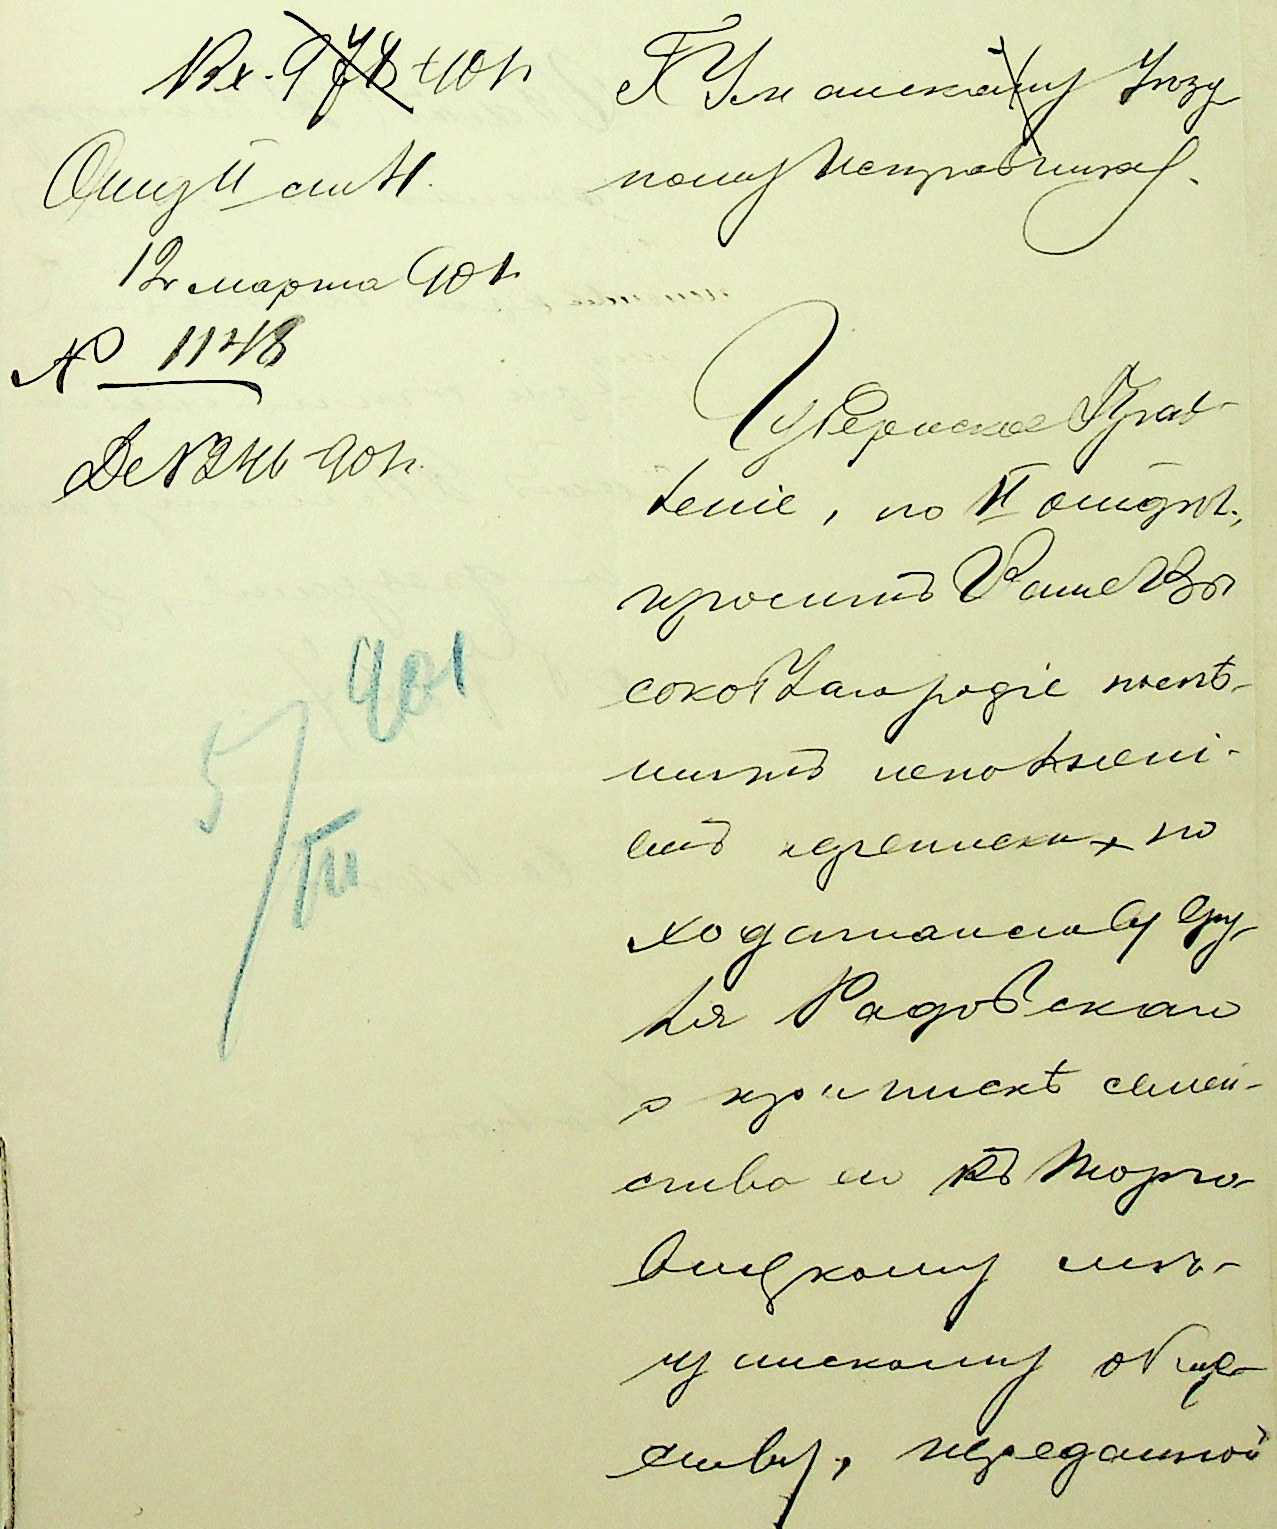 Вх. 978 - 901 г.
Отд II ст. 4.
12 марта 901 г.
№ 1148
Де № 246 - 901 г.
5/III 901
Г. Уманскому Уѣзд
ному Исправнику.
Губернское Прав
леніе, по II отдѣл.,
проситъ Ваше Вы
сокоблагородіе поспѣ-
шить исполнені-
емъ переписки, по
ходатайству Сру
ля Радовскаго
о припискѣ семей-
ства его къ Торго-
вицкому мѣ-
щанскому обще-
ству, переданной